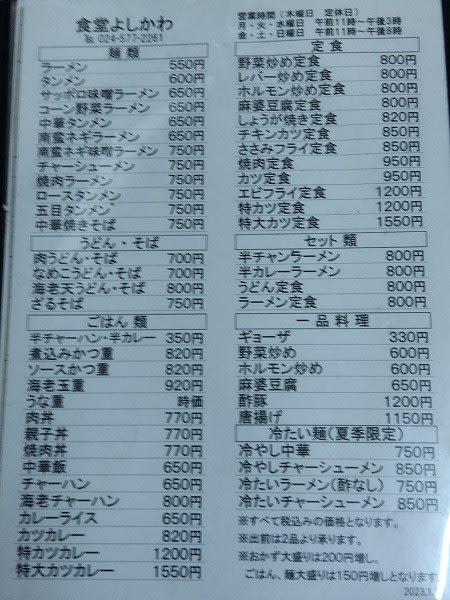 食堂よしかわ
℡ 024-577-2261
麺類
ラーメン 550円
タンメン 600円
サッポロ味噌ラーメン 650円
コーン野菜ラーメン 650円
中華タンメン 650円
南蛮ネギラーメン 750円
南蛮ネギ味噌ラーメン 750円
チャーシューメン 750円
焼肉ラーメン 750円
ロースタンメン 750円
五目タンメン 750円
中華焼きそば 750円
うどん・そば
肉うどん・そば 700円
なめこうどん・そば 700円
海老天うどん・そば 800円
ざるそば 750円
ごはん類
半チャーハン・半カレー 350円
煮込みかつ重 820円
ソースかつ重 820円
海老玉重 920円
うな重 時価
肉丼 770円
親子丼 770円
焼肉丼 770円
中華飯 650円
チャーハン 650円
海老チャーハン 800円
カレーライス 650円
カツカレー 820円
特カツカレー 1200円
特大カツカレー 1550円
営業時間(木曜日 定休日)
月・火・水曜日 午前11時～午後3時
金・土・日曜日 午前11時～午後8時
定食
野菜炒め定食 800円
レバー炒め定食 800円
ホルモン炒め定食 800円
麻婆豆腐定食 800円
しょうが焼き定食 820円
チキンカツ定食 850円
ささみフライ定食 850円
焼肉定食 950円
カツ定食 950円
エビフライ定食 1200円
特カツ定食 1200円
特大カツ定食 1550円
セット類
半チャンラーメン 800円
半カレーラーメン 800円
うどん定食 800円
ラーメン定食 800円
一品料理
ギョーザ 330円
野菜炒め 600円
ホルモン炒め 600円
麻婆豆腐 650円
酢豚 1200円
唐揚げ 1150円
冷たい麺(夏季限定)
冷やし中華 750円
冷やしチャーシューメン 850円
冷たいラーメン(酢なし) 750円
冷たいチャーシューメン 850円
※すべて税込みの価格となります。
※出前は2品より承ります。
※おかず大盛りは200円増し。
ごはん、麺大盛りは150円増しとなります
2023.1.